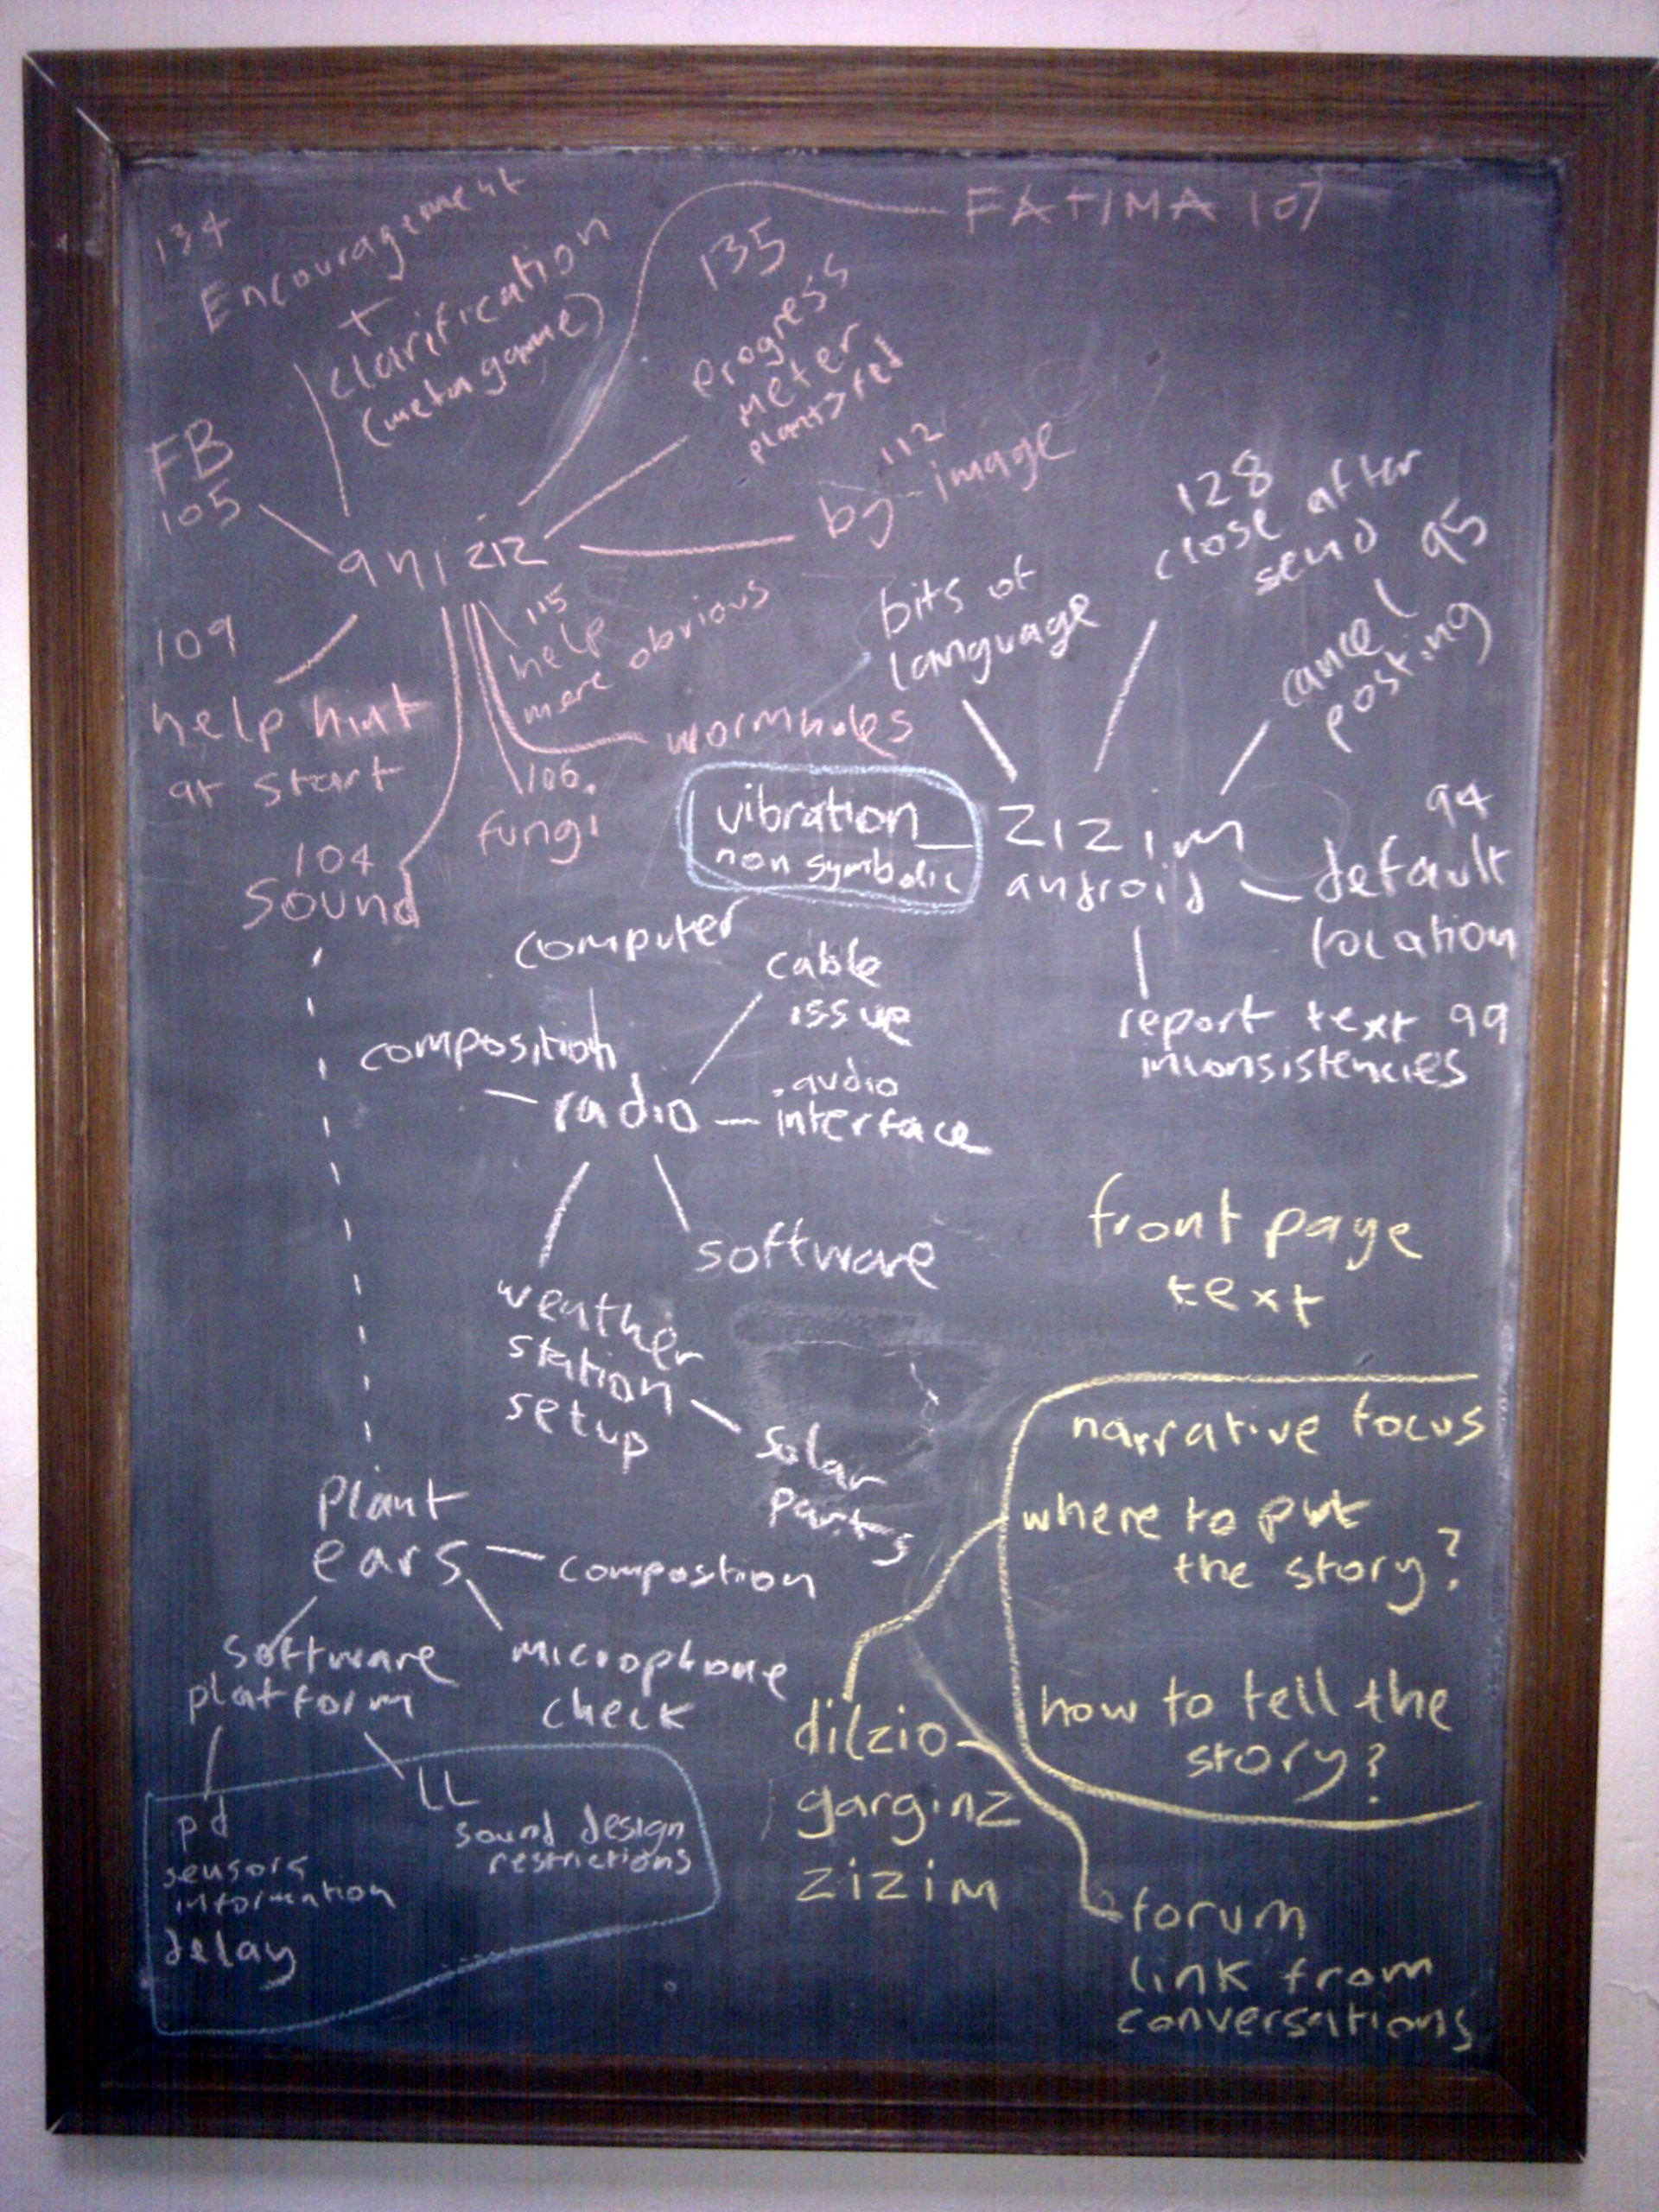 134
Encouragement
+
clarification
(metagame)
FATIMA 107
135
progress
meter
plants > fed
FB
105
112
bg-image
aniziz
109
help hint
at start
115
help
more obvious
wormholes
106.
fungi
104
sound
bits of
language
128
close after
send
cancel 95
posting
vibration
non symbolic
zizim
android
94
default
location
report text 99
inconsistencies
computer
cable
issue
composition
radio
audio
interface
software
weather
station
setup
solar
parts
front page
text
narrative focus
where to put
the story?
how to tell the
story?
plant
ears
compostion
microphone
check
software
platform
pd
sensors
information
delay
LL
sound design
restrictions
dilzio
garginz
zizim
forum
link from
conversations